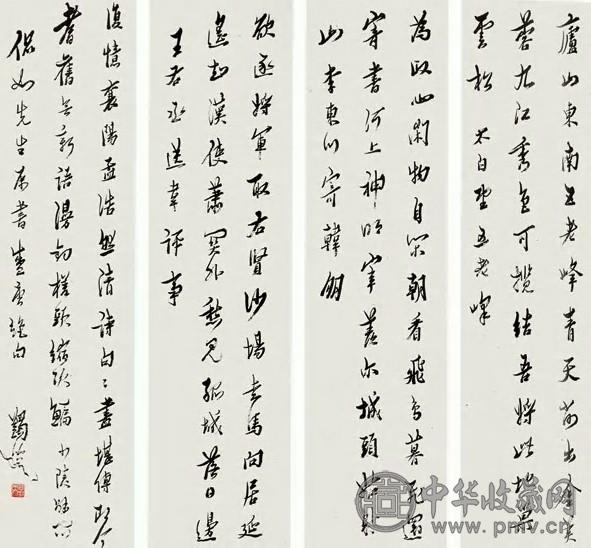 廬山東南五老峰青天削出金芙
蓉九江秀色可攬結吾將此地巢
雲松 太白望五老峰
為政心閑物自閑朝看飛鳥暮飛還
寄書河上神明宰羨爾城頭姑射
山李東川寄韓鵬
欲逐將軍取右賢沙場走馬向居延
遙知漢使蕭關外愁見孤城落日邊
王右丞送韋評事
復憶襄陽孟浩然清詩句々盡堪傳即今
耆舊無新語漫釣槎頭縮頸鯿 少陵解悶
侃如先生屬書盛唐絕句
蠲叟
中华收藏网
www.pmv.cn